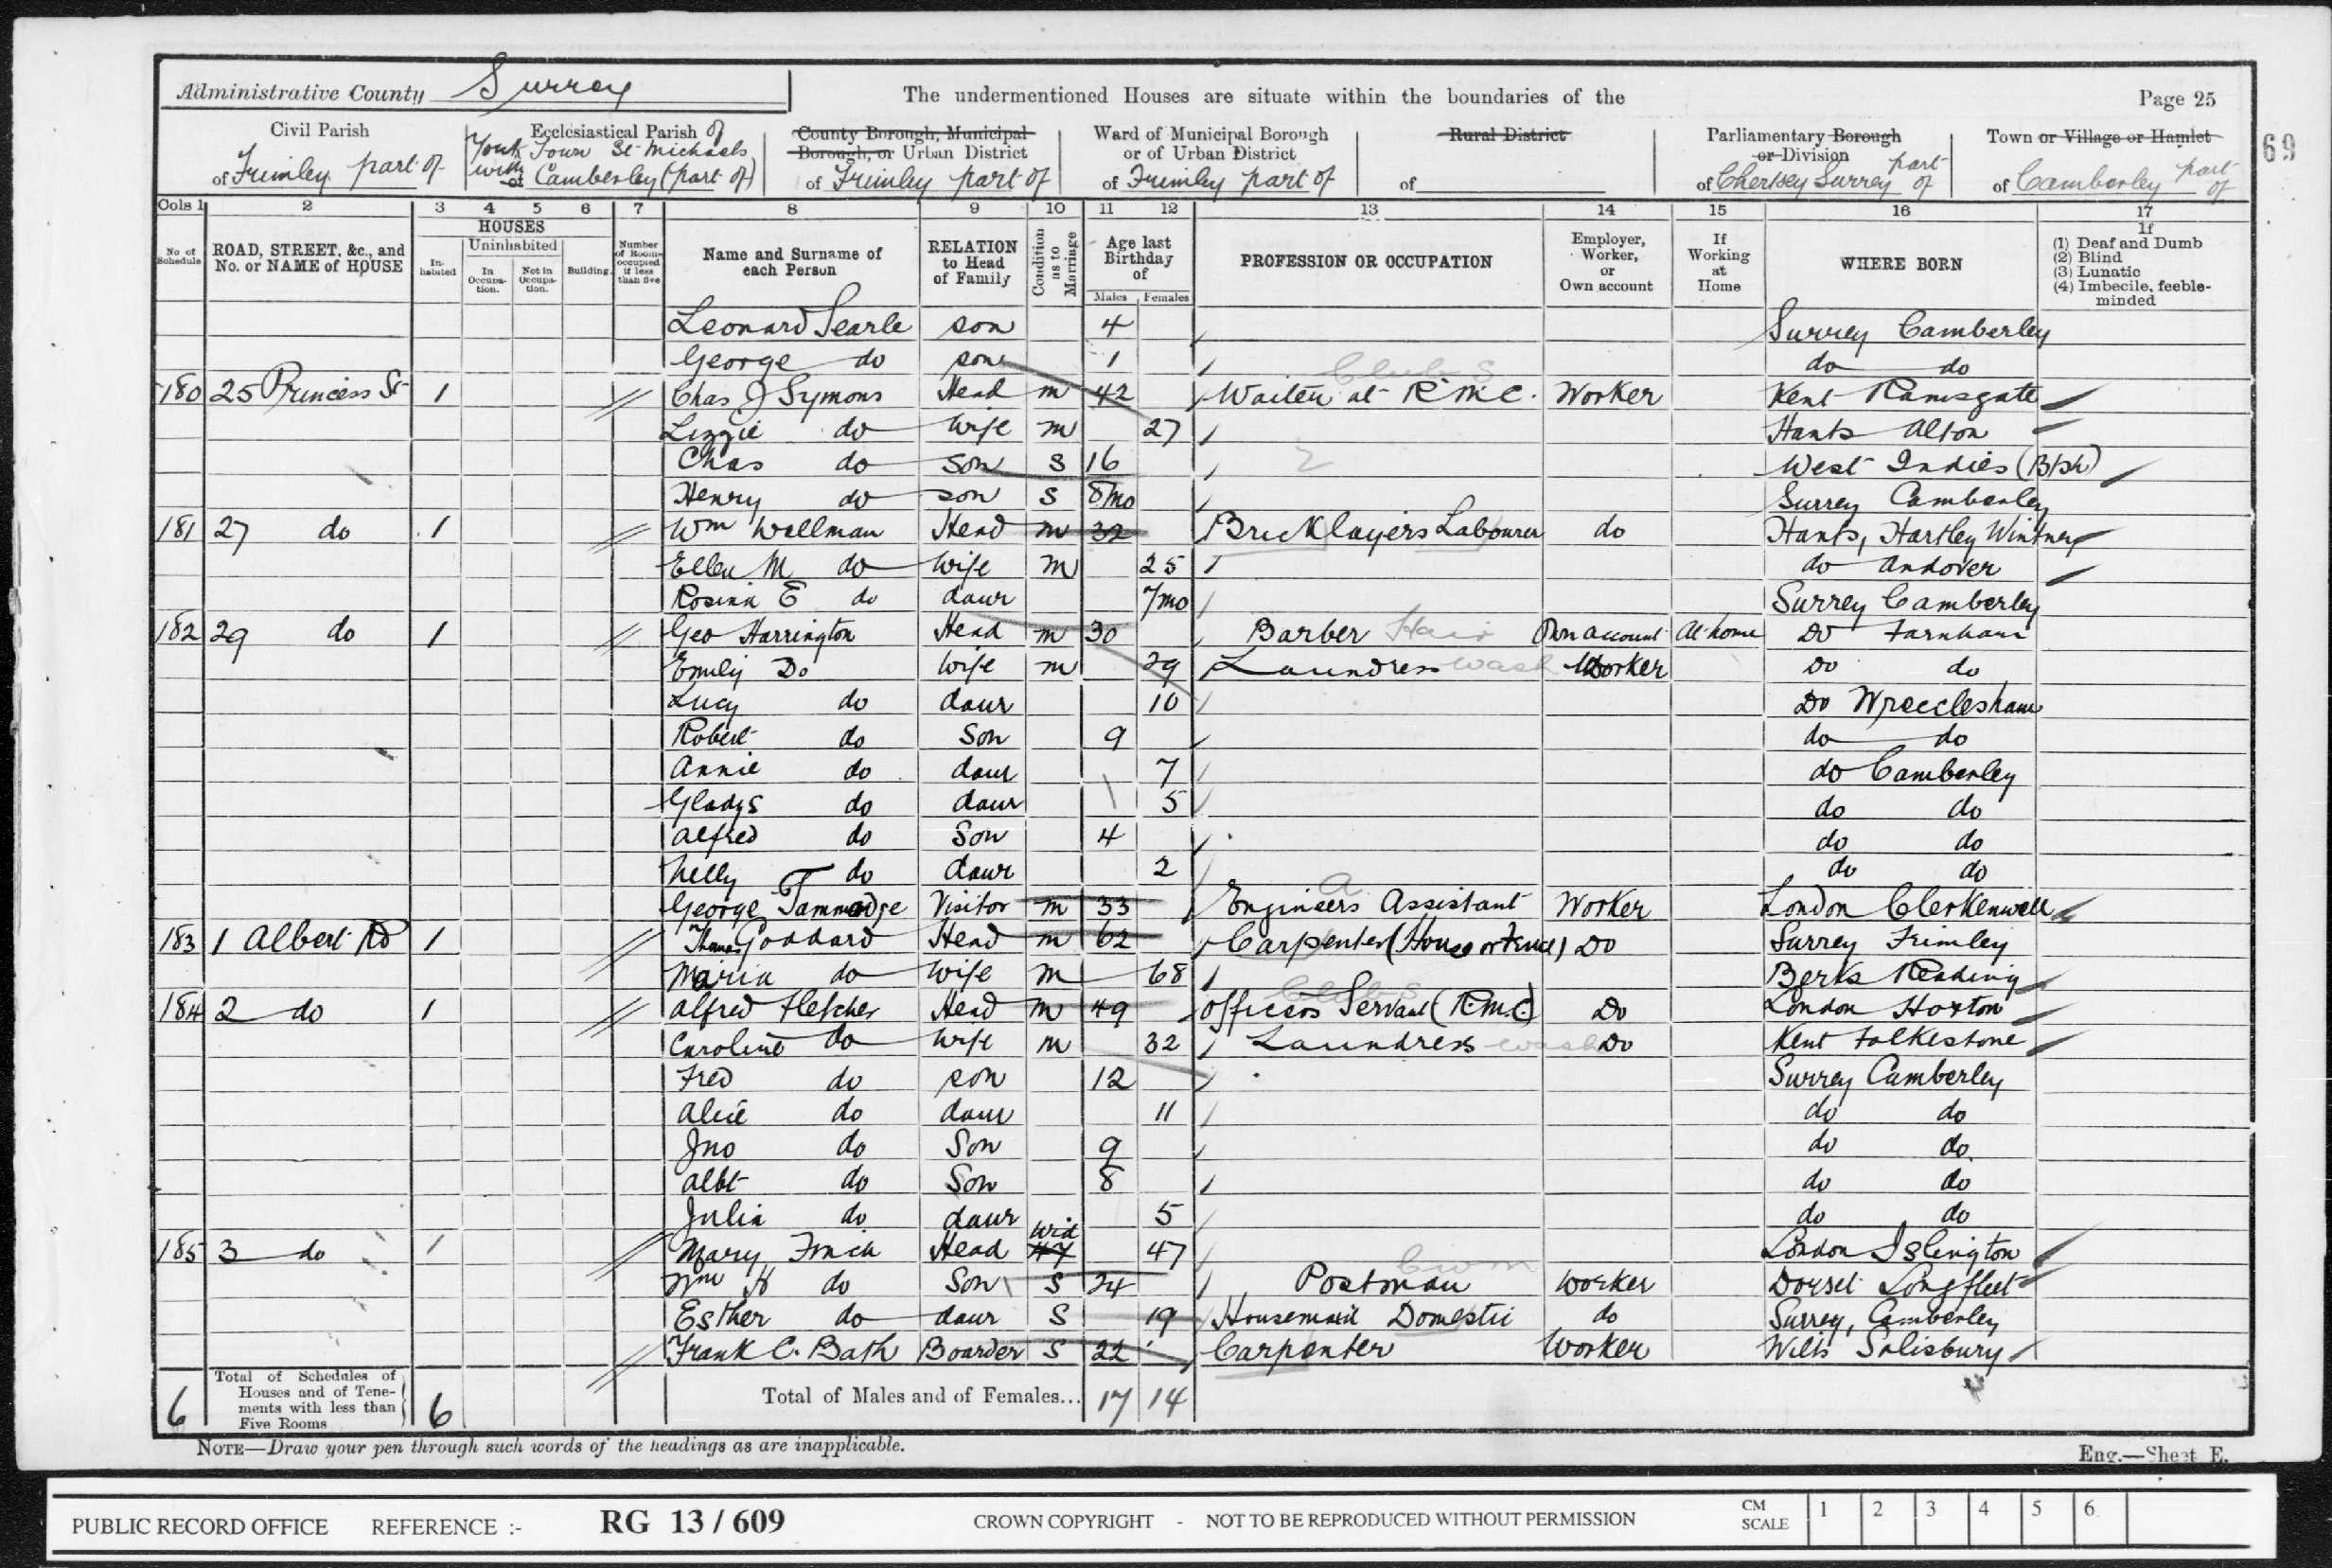 Administrative County Surrey
The undermentioned Houses are situate within the boundaries of the
Page 25
69
Civil Parish
of Frimley part of
Ecclesiastical Parish of
York Town St Michaels
with of Camberley (part of)
County Borough, Municipal
Borough, or Urban District
of Frimley part of
Ward of Municipal Borough
or of Urban District
of Frimley part of
Rural District
of
Parliamentary Borough
or Division
of Chertsey Surrey part of
Town or Village or Hamlet
of Camberley part of
Cols 1 2 3 4 5 6 7 8 9 10 11 12 13 14 15 16 17
No of Schedule
ROAD, STREET, &c., and No. or NAME of HOUSE
HOUSES
Inhabited
Uninhabited
In Occupation.
Not in Occupation.
Building.
Number of Rooms occupied if less than five
Name and Surname of each Person
RELATION to Head of Family
Condition as to Marriage
Age last Birthday of
Males Females
PROFESSION OR OCCUPATION
Employer, Worker, or Own account
If Working at Home
WHERE BORN
If
(1) Deaf and Dumb
(2) Blind
(3) Lunatic
(4) Imbecile, feeble-minded
Leonard Searle son 4 Surrey Camberley
George do son 1 do do
180 25 Princess St 1 Chas J Symons Head m 42 Waiter at R.M.C. Worker Kent Ramsgate
Lizzie do Wife m 27 Hants Alton
Chas do son S 16 West Indies (B/sh)
Henry do son S 8/mo Surrey Camberley
181 27 do 1 Wm Wellman Head m 32 Bricklayers Labourer do Hants, Hartley Wintney
Ellen M do Wife m 25 do Andover
Rosina E do daur 7mo Surrey Camberley
182 29 do 1 Geo Harrington Head m 30 Barber Hair Own account At home Do Farnham
Emily Do Wife m 29 Laundress Wash Worker Do do
Lucy do daur 10 Do Wrecclesham
Robert do Son 9 do do
Annie do daur 7 do Camberley
Gladys do daur 5 do do
Alfred do Son 4 do do
Nelly do daur 2 do do
George Tammadge Visitor m 33 Engineers Assistant Worker London Clerkenwell
183 1 Albert Rd 1 Thomas Goddard Head m 62 Carpenter (House or Fence) Do Surrey Frimley
Maria do Wife m 68 Berks Reading
184 2 do 1 Alfred Fletcher Head m 49 Officers Servant (R.M.C) Do London Hoxton
Caroline do Wife m 32 Laundress wash Do Kent Folkestone
Fred do son 12 Surrey Camberley
Alice do daur 11 do do
Jno do Son 9 do do
Albt do Son 8 do do
Julia do daur 5 do do
185 3 do 1 Mary Finch Head Wid 47 47 London Islington
Wm H do Son S 24 Postman Worker Dorset Longfleet
Esther do daur S 19 Housemaid Domestic do Surrey, Camberley
Frank C. Bath Boarder S 22 Carpenter Worker Wilts Salisbury
6 Total of Schedules of Houses and of Tenements with less than Five Rooms 6 Total of Males and of Females... 17 14
NOTE—Draw your pen through such words of the headings as are inapplicable.
Eng.—Sheet E.
PUBLIC RECORD OFFICE REFERENCE :- RG 13/609 CROWN COPYRIGHT - NOT TO BE REPRODUCED WITHOUT PERMISSION CM SCALE 1 2 3 4 5 6